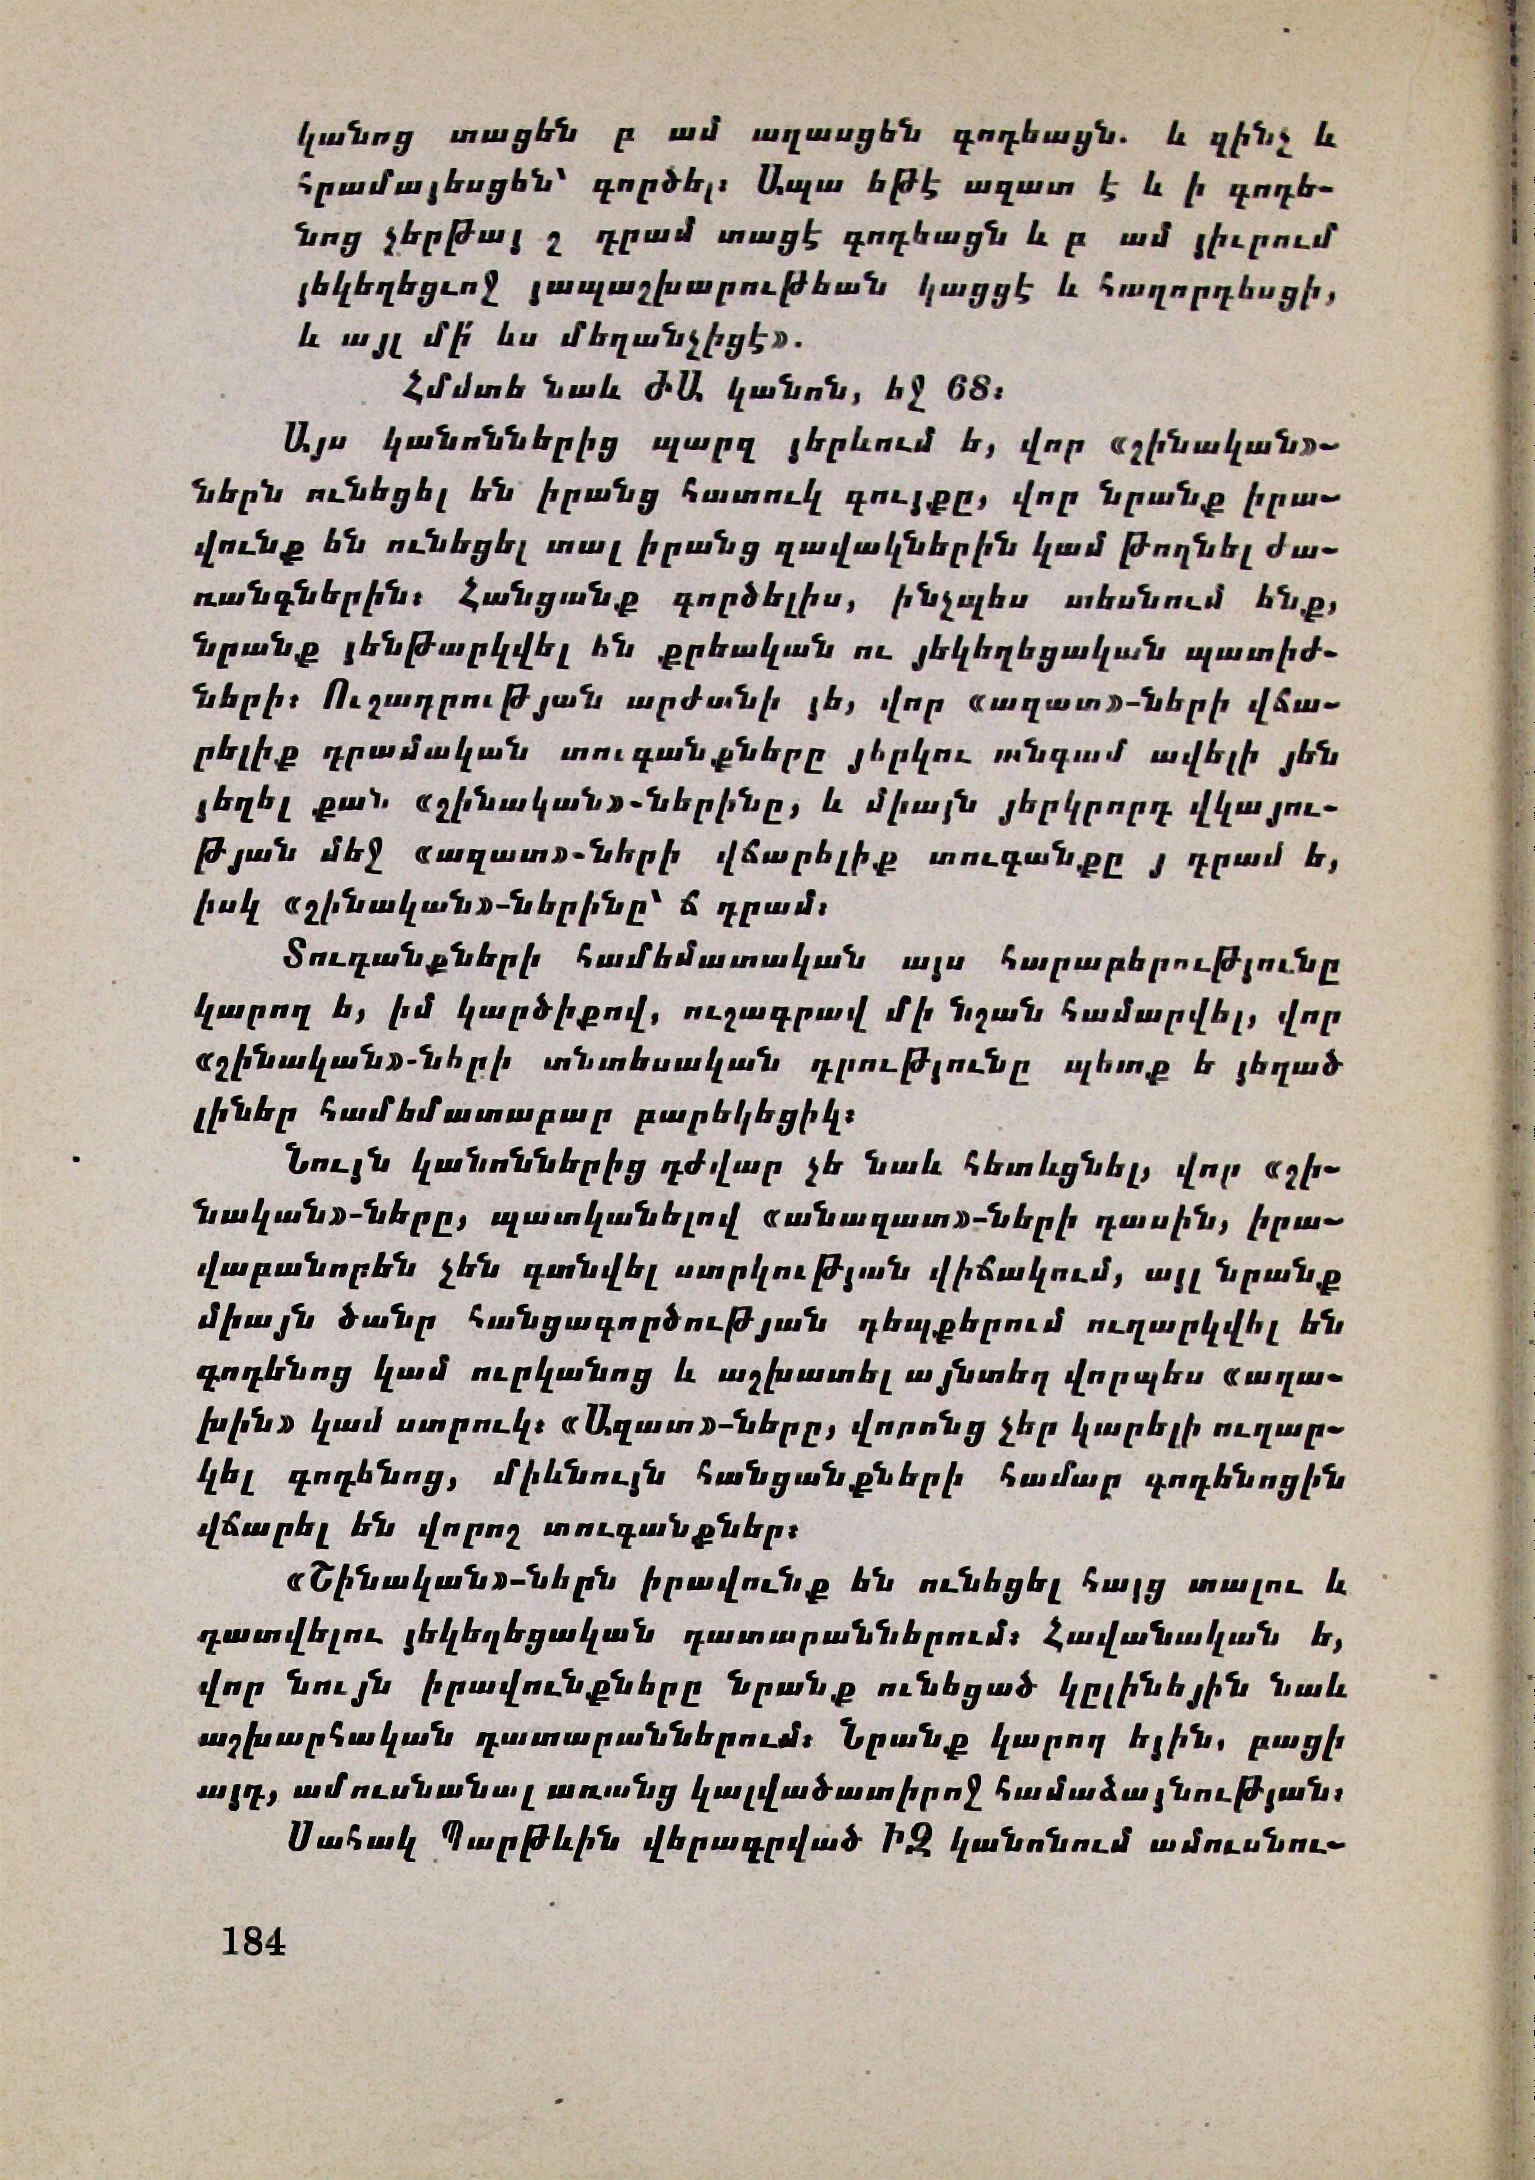 կանոց տացեն բ ամ աղասցեն գոդեացն. և զինչ և
հրամայեսցեն՝ գործել։ Ապա եթէ ազատ է և ի գոդե-
նոց չերթայ շ դրամ տացէ գոդեացն և բ ամ յիւրում
յեկեղեցւոջ յապաշխարութեան կացցէ և հաղորդեսցի,
և այլ մի՛ ևս մեղանչիցէ».
Հմմտե նաև ԺԱ կանոն, եջ 68։
Այս կանոններից պարզ յերևում ե, վոր «շինական»-
ներն ունեցել են իրանց հատուկ գույքը, վոր նրանք իրա-
վունք են ունեցել տալ իրանց զավակներին կամ թողնել ժա-
ռանգներին։ Հանցանք գործելիս, ինչպես տեսնում ենք,
նրանք յենթարկվել են քրեական ու յեկեղեցական պատիժ-
ների։ Ուշադրության արժանի յե, վոր «ազատ»-ների վճա-
րելիք դրամական տուգանքները յերկու անգամ ավելի յեն
յեղել քան «շինական»-ներինը, և միայն յերկրորդ վկայու-
թյան մեջ «ազատ»-ների վճարելիք տուգանքը յ դրամ ե,
իսկ «շինական»-ներինը՝ ճ դրամ։
Տուդանքների համեմատական այս հարաբերությունը
կարող ե, իմ կարծիքով, ուշագրավ մի նշան համարվել, վոր
«շինական»-ների տնտեսական դրությունը պետք ե յեղած
լիներ համեմատաբար բարեկեցիկ։
Նույն կանոններից դժվար չե նաև հետևցնել, վոր «շի-
նական»-ները, պատկանելով «անազատ»-ների դասին, իրա-
վաբանորեն չեն գտնվել ստրկության վիճակում, այլ նրանք
միայն ծանր հանցագործության դեպքերում ուղարկվել են
գոդենոց կամ ուրկանոց և աշխատել այնտեղ վորպես «աղա-
խին» կամ ստրուկ։ «Ազատ»-ները, վորոնց չեր կարելի ուղար-
կել գոդենոց, միևնույն հանցանքների համար գոդենոցին
վճարել են վորոշ տուգանքներ։
«Շինական»-ներն իրավունք են ունեցել հայց տալու և
դատվելու յեկեղեցական դատարաններում։ Հավանական ե,
վոր նույն իրավունքները նրանք ունեցած կըլինեյին նաև
աշխարհական դատարաններում։ Նրանք կարող եյին, բացի
այդ, ամուսնանալ առանց կալվածատիրոջ համաձայնության։
Սահակ Պարթևին վերագրված ԻԶ կանոնում ամուսնու-
184